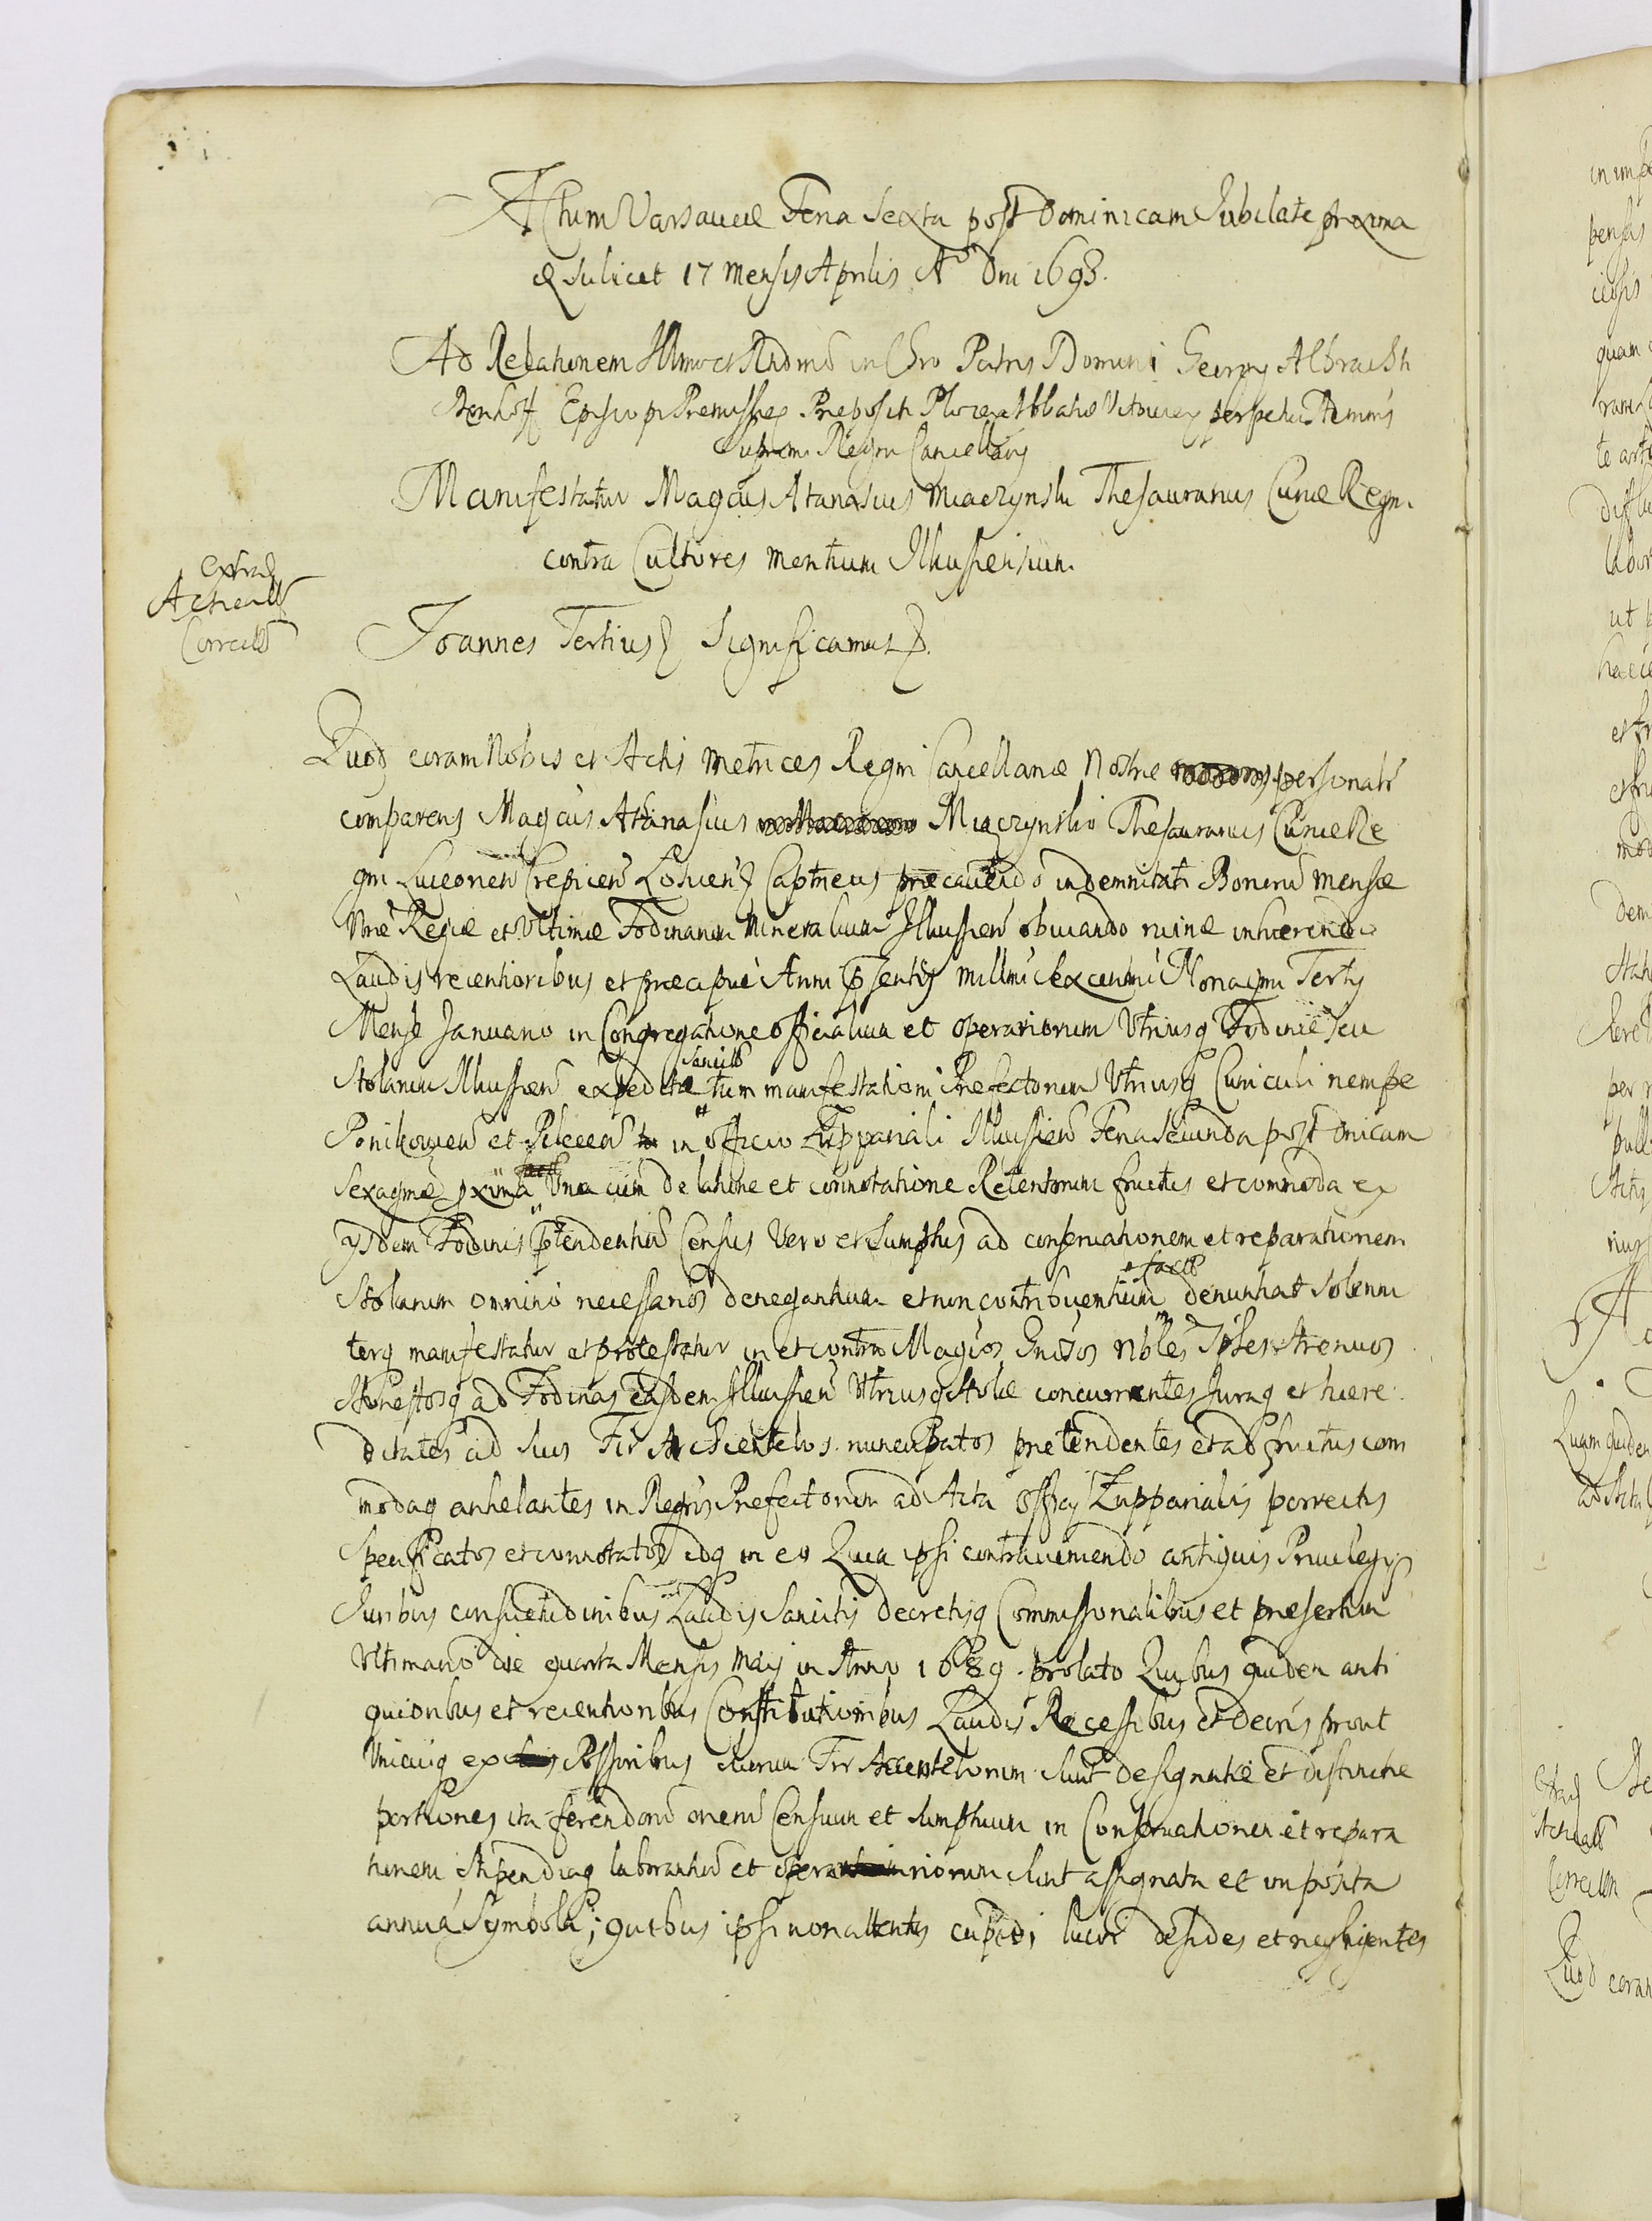 Actum Varsaviæ Feria Sexta post Dominicam Jubilate proxima
scilicet 17 Mensis Aprilis Aº Dni 1693.
Ad Relationem Illmi et Rndmi in Chro Patris Domini Georgy Albracht
Denhoff Episcopi Premislien Præpositi Plocen Abbatiæ perpetui Administris
Supremi Regni Cancellarij
Manifestatur Magcus Atanasius Miaczynski Thesaurarius Curiæ Regni
contra Cultores Montium Illkussiensium.
Extrad
Acticat
Correct
Joannes Tertius Significamus
Quod coram Nobis et Actis Metrices Regni Cancellariæ Nostræ personalr
comparens Magcus Athanasius Miączynski Thesaurarius Curiæ Re
gni Luceoren Crepicen Losicen Captneus præcavendo indemnitati Bonorum mensæ
Nræ Regiæ et Vltimæ Fodinarum Mineralium Illkussien obviando ruinæ inhærendo
Laudis recentioribus et præcipue Anni psentis Millmi Sexcentmi Nonagmi Tertij
Mense Januario in Congregatione Officialium et Operariorum Vtriusq Fodinæ seu
Stolarum Illkussien expeditæ sancitis tum manifestationi Præfectorum Vtriusq Cuniculi nempe
Ponikowien et Pilecen in officio Zuppariali Illkussien Feria Secunda post Dnicam
Sexagmæ pxima Vna cum delatione et connotatione Retentorum fructus et commoda ex
ijsdem Fodinis ptendentium Census Vero et sumptus ad conservationem et reparationem
Stolarum omnino necessarios denegantium et non contribuentium facta denuntiat Solenni
terq manifestatur et protestatur in et contra Magcos Gnsos Nbles Strenuos
Honestosq ad Fodinas easdem Illkussien Vtriusq Stolæ concurrentes Juraq et hære
ditates ad suos Fir nuncupatos prætendentes et ad fructus com
modaq anhelantes in Regris Præfectorum ad Acta Officij Zupparialis porrectis
Specificatos et connotatos idq in eo Quia ipsi contraveniendo antiquis Privilegijs
Juribus consuetudinibus Laudis Sancitis decretisq Commissionalibus et præsertim
Vltimario die quarta Mensis Maij in Anno 1689 prolato Quibus quidem anti
quioribus et recentioribus Constitutionibus Laudis Recessibus et decris prout
Vnicuiq ex Possoribus suarum sunt designatæ et distinctæ
portiones ita ferendorum onerum Censuum et sumptuum in Conservationem et repara
tionem stipendiaq laborantium et operariorum sunt assignata et imposita
annua Symbola; quibus ipsi non attentis cupidi lucri desides et negligentes